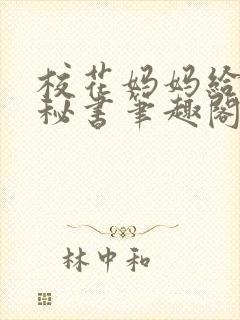 校花妈妈给
秘书笔趣阁
林中和